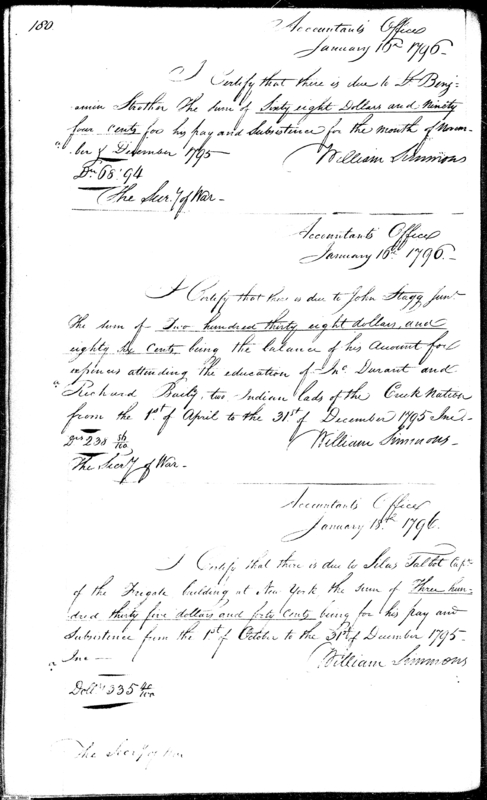 180
Accountants Office
January 16th 1796
I Certify that there is due to Lt Benj-
amin Strother The sum of Sixty eight Dollars and Ninety
four cents for his pay and Subsistence for the month of Novem-
ber & December 1795
William Simmons
Drs 68.94
The Secry of War
Accountants Office
January 16th 1796
I Certify that there is due to John Stagg Junr
The sum of Two hundred thirty eight dollars and
eighty six cents being the balance of his Account for
expences attending the education of Mc Durant and
Richard Baily, two Indian lads of the Creek Nation
from the 1st of April to the 31st of December 1795 Incl
William Simmons
Drs 238 86/100
The Secry of War
Accountants Office
January 18th 1796
I Certify that there is due to Silas Talbot Capt
of the Frigate building at New York the sum of Three hun-
dred thirty five dollars and forty Cents being for his pay and
Subsistence from the 1st of October to the 31st of December 1795
Inc
William Simmons
Dolls 335 40/100
The Secry of War